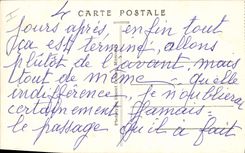 I
4
CARTE POSTALE
jours après, enfin tout
ça est terminé, allons
plutôt de l'avant, mais
tout de même quelle
indifférence, je n'oublierai
certainement jamais
le passage qu'il a fait